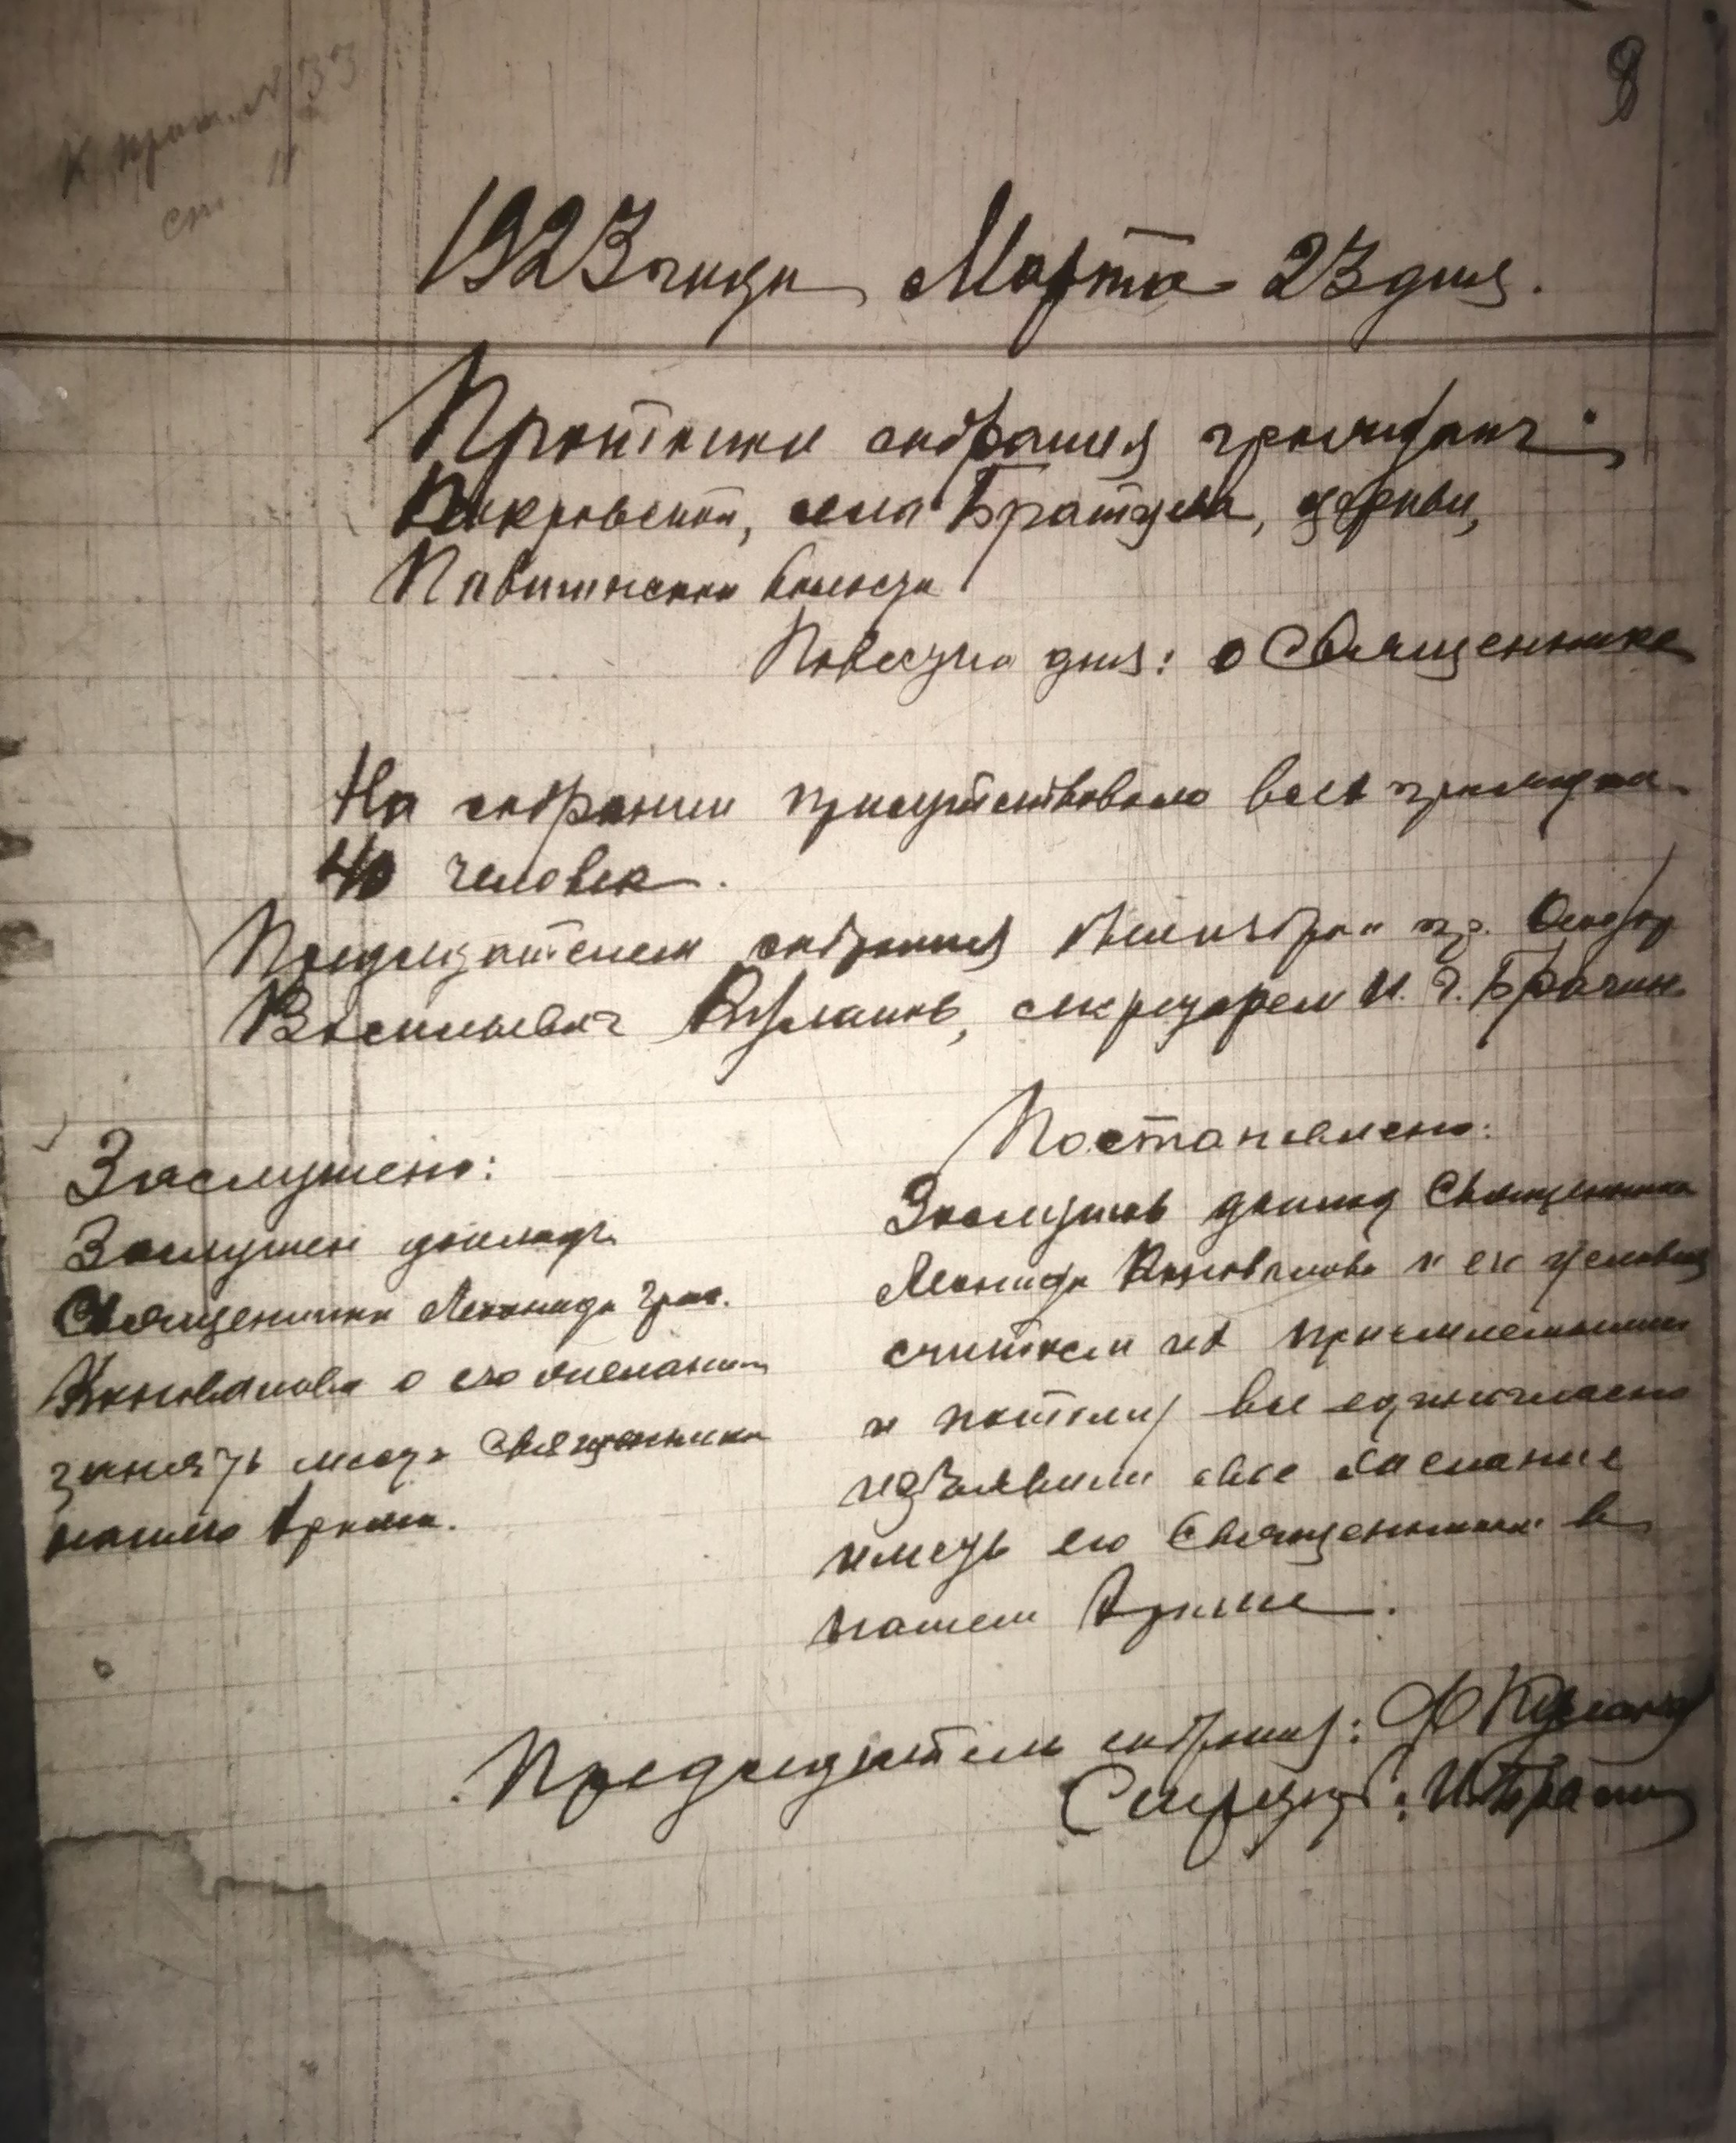 К прот. № 33
ст. 11
8
1923 года Марта 23 дня.
Протокол собрания граждан
Покровской, села Братцева, церкви,
Павшинской волости
Повестка дня: о Священнике
На собрании присутствовало всех граждан
40 человек.
Председателем собрания был избран гр. Федор
Васильевич Кузланов, секретарем И. Г. Брагин.
Заслушено:
Заслушен доклад
Священника Леонида Гри.
Коновалова о его желании
занять место Священника
нашего Храма.
Постановлено:
Заслушав доклад Священника
Леонида Коновалова и его условия
считаем их приемлемыми
и потому все единогласно
изъявили свое желание
иметь его Священником в
нашем Храме.
Председатель собрания: Ф
Секретарь: И Брагин